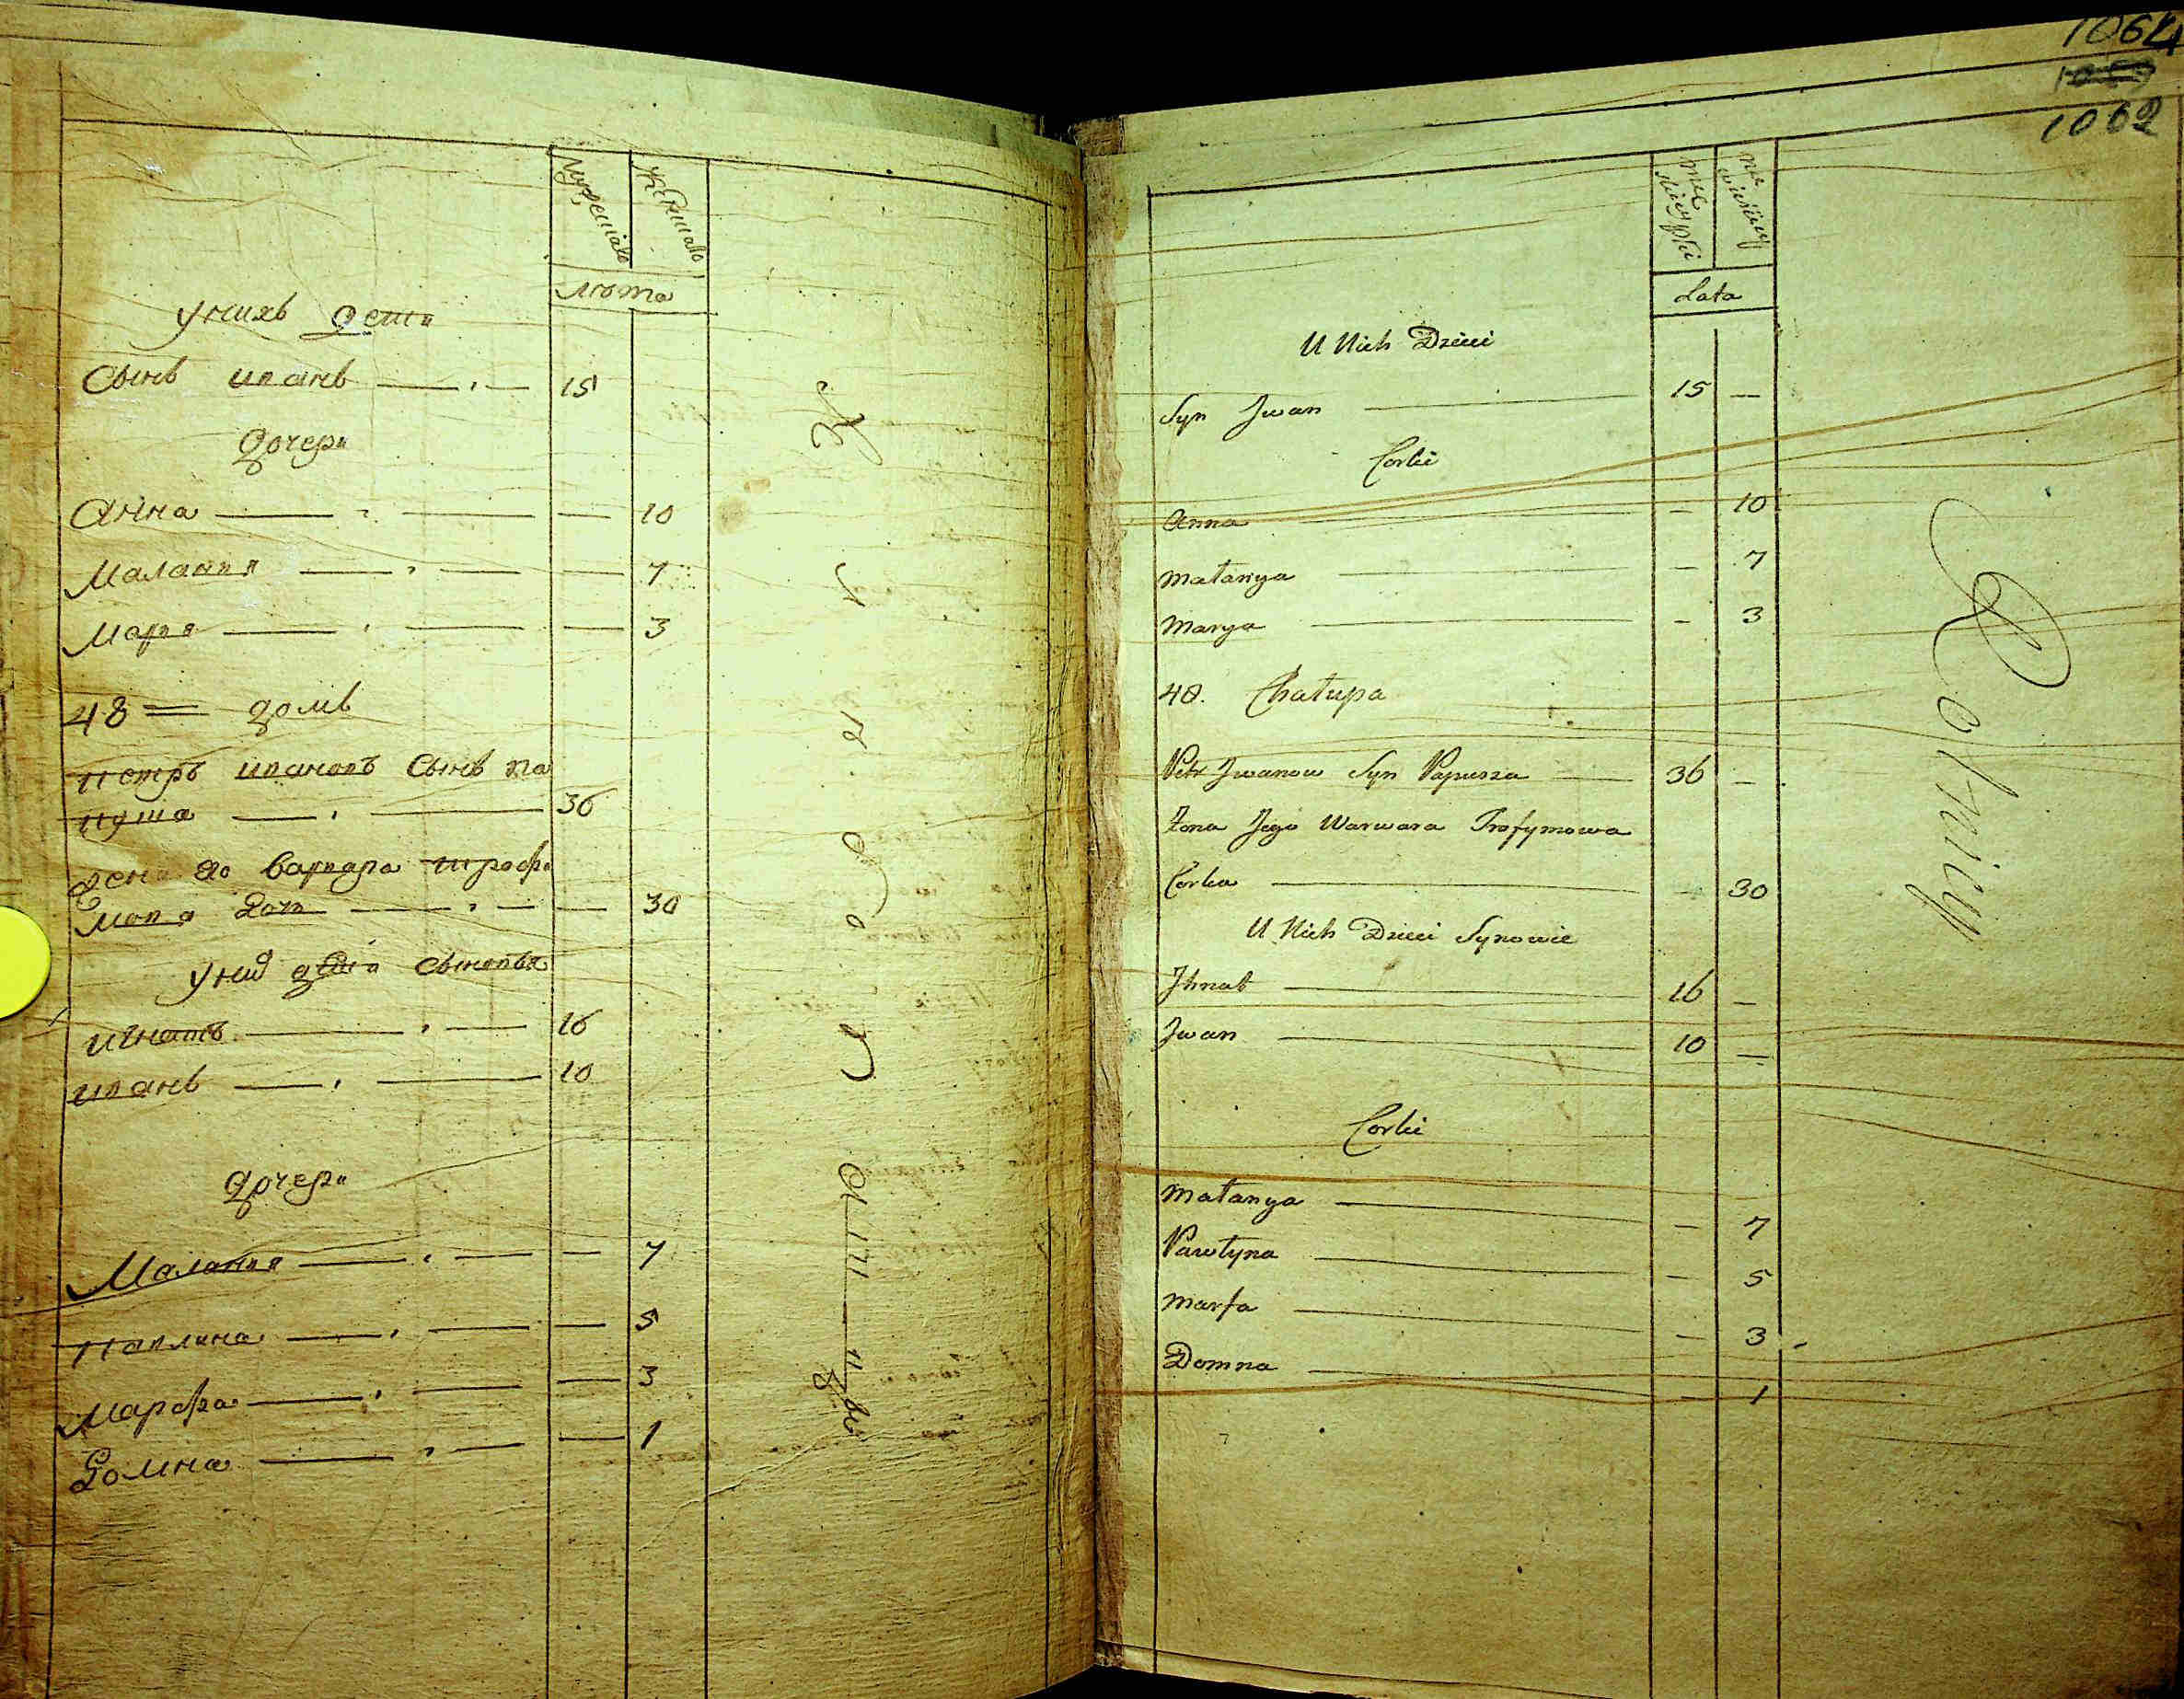 Мужеска
Женска
лѣта
Унихъ дети
Сынъ иванъ 15
Дочери
Анна 10
Малания 7
Маря 3
48 = домъ
петръ ивановъ Сынъ па
пуша 36
жена его варвара трофи
мова дочь 30
Унихъ дети Сыновья
игнатъ 16
иванъ 10
дочери
Малания 7
павлина 5
Марфа 3
Домна 1
1064
1062
Lata
U Nich Dzieci
Syn Jwan 15 —
Corki
Anna — 10
Małanya — 7
Marya — 3
48. Chałupa
Petr Jwanow Syn Papusza 36 —
Żona Jego Warwara Trofymowa
Corka — 30
U Nich Dzieci Synowie
Jhnat 16 —
Jwan 10 —
Corki
Małanya — 7
Pawłyna — 5
Marfa — 3
Domna — 1
Rolnicy